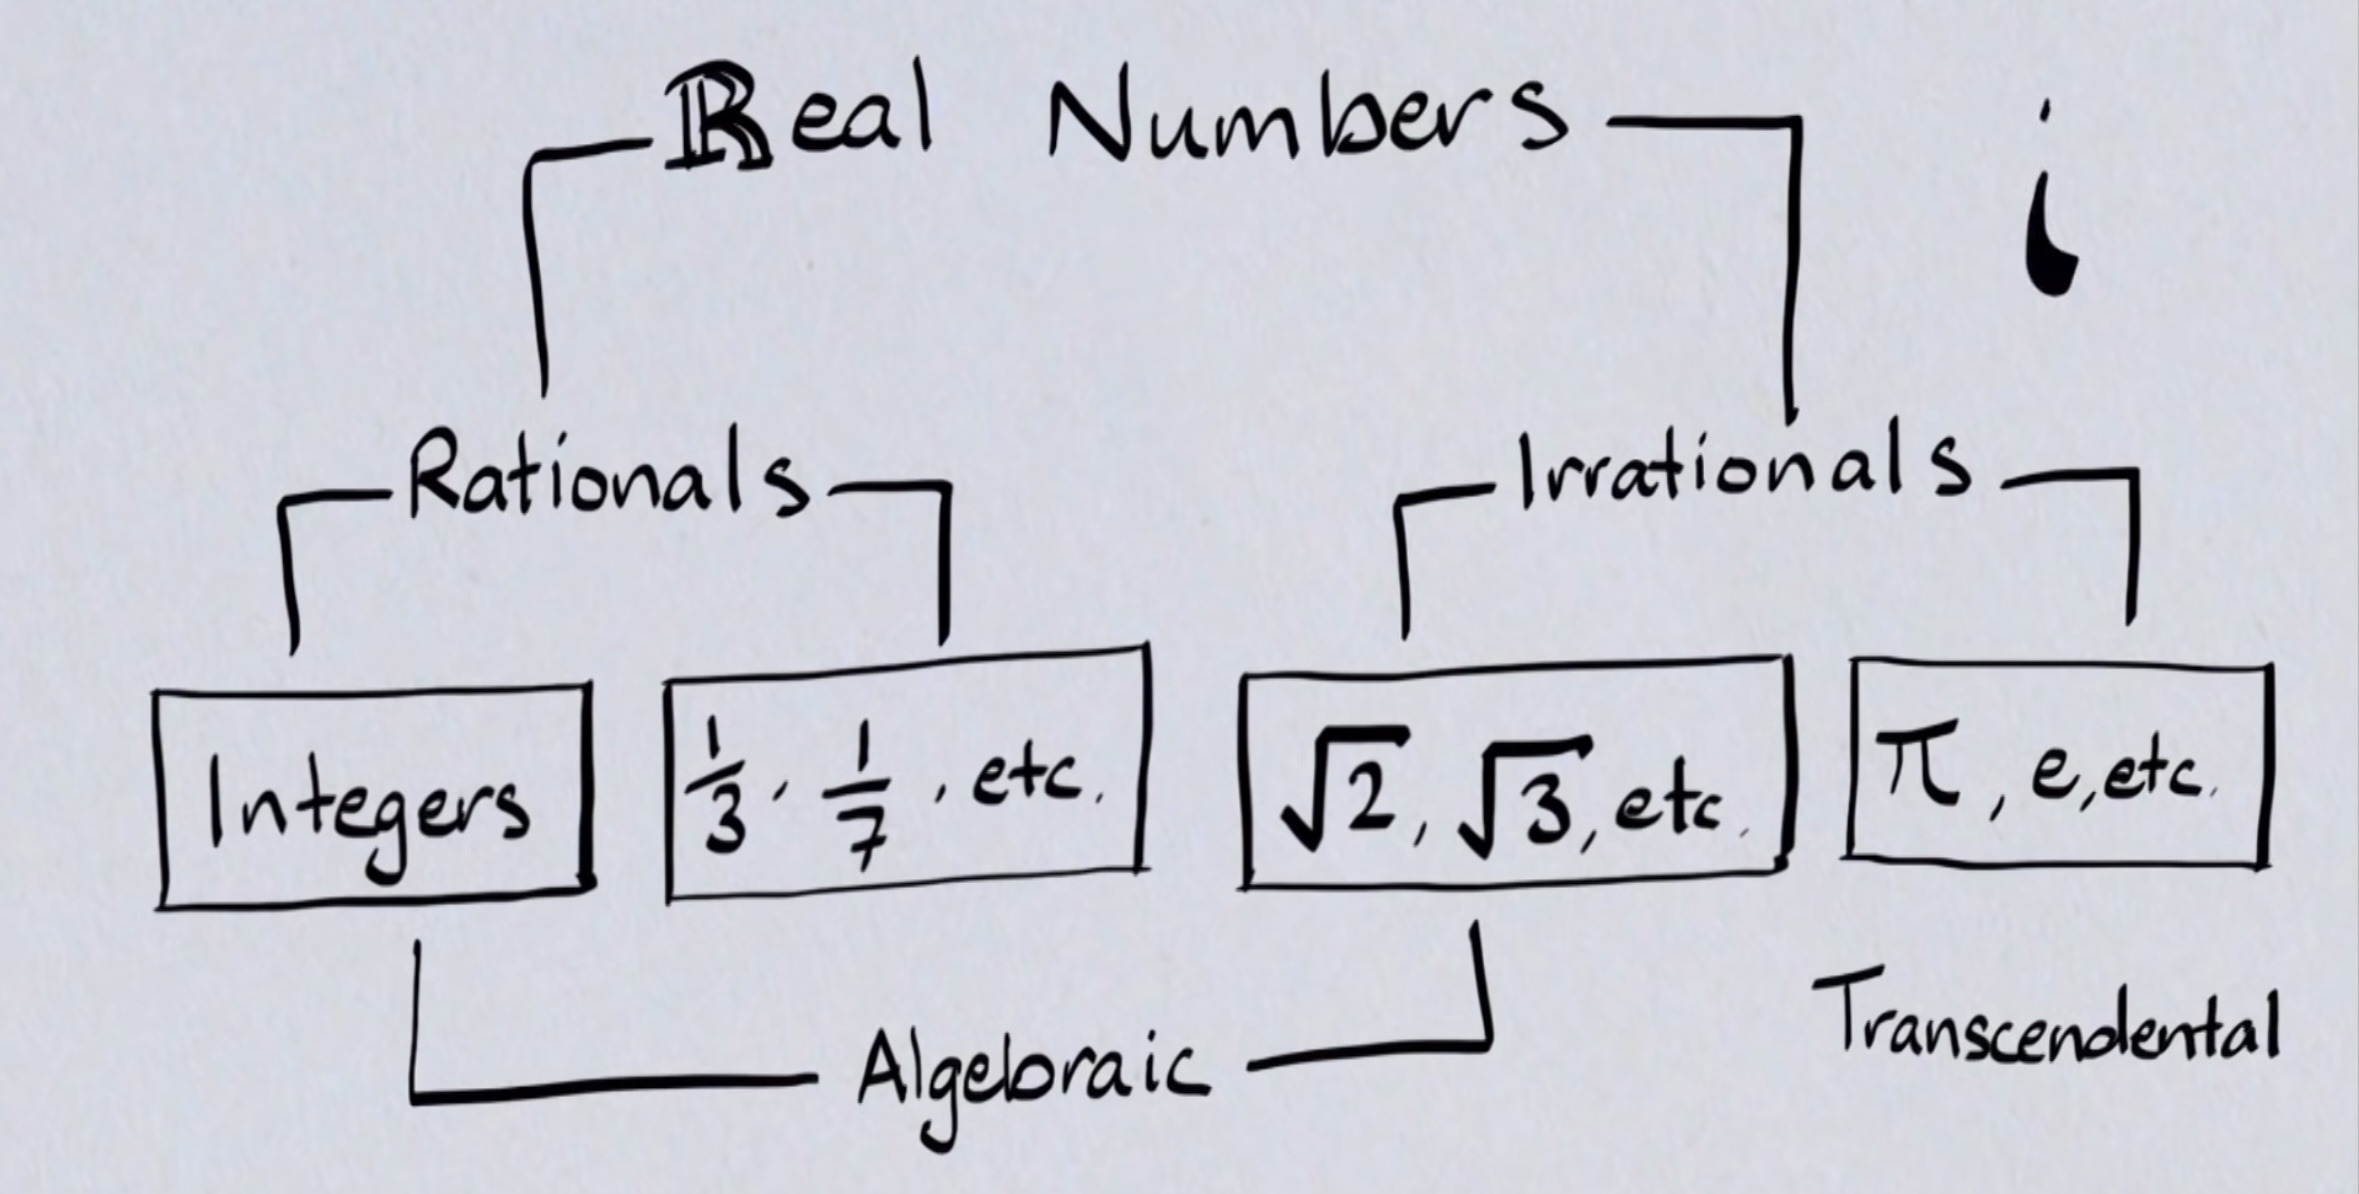 Real Numbers i
Rationals Irrationals
Integers
1/3, 1/7, etc.
√2, √3, etc.
π, e, etc.
Algebraic
Transcendental